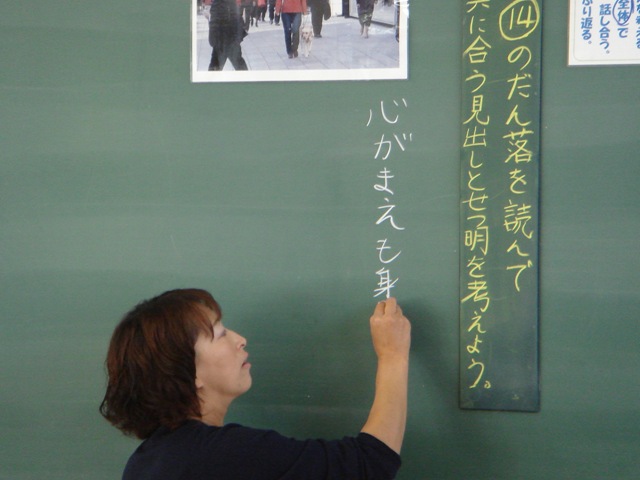 全体で
話し合う。
ふり返る。
⑭のだん落を読んで
に合う見出しとせつ明を考えよう。
心がまえも身